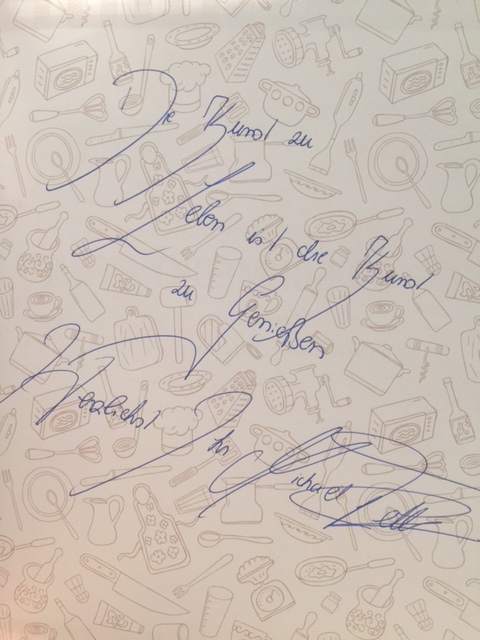 Die Kunst zu
Leben ist die Kunst
zu Genießen
Herzlichst Ihr Michael